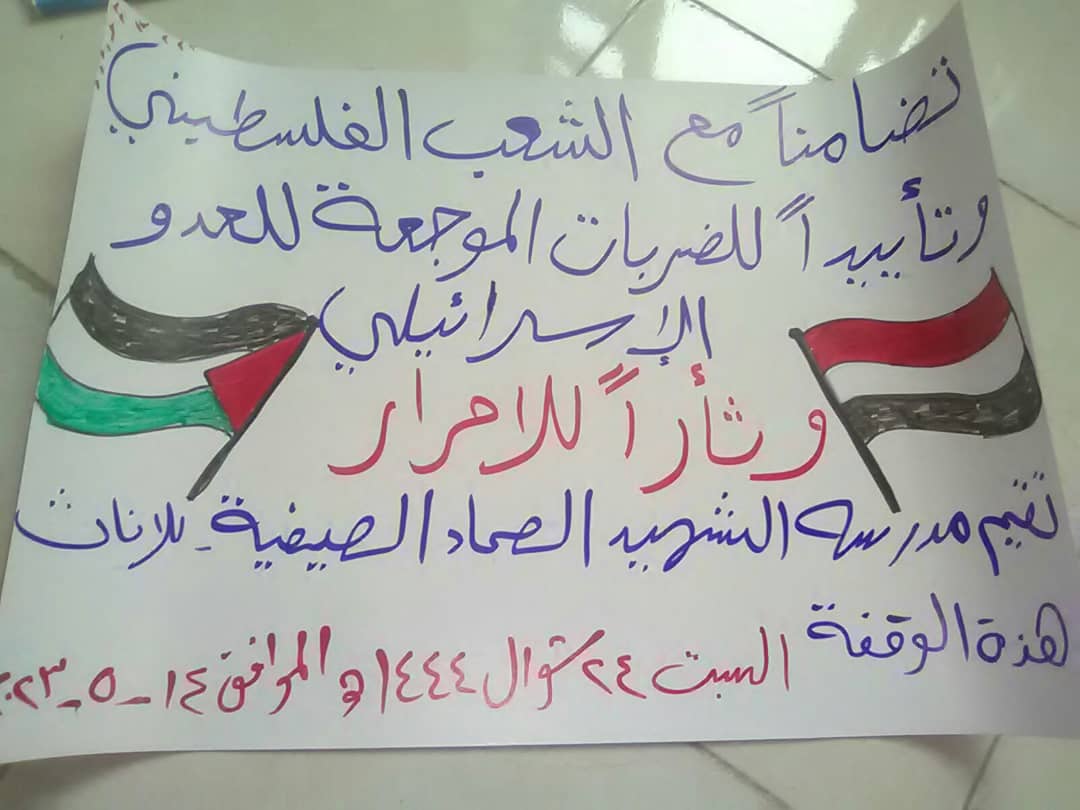 تضامناً مع الشعب الفلسطيني
وتأييداً للضربات الموجعة للعدو
الإسرائيلي
وثأراً للاحرار
تقيم مدرسة الشهيد الصماد الصيفية_للاناث
هذه الوقفة
السبت ٢٤ شوال ١٤٤٤ه الموافق ١٤_٥_٢٠٢٣